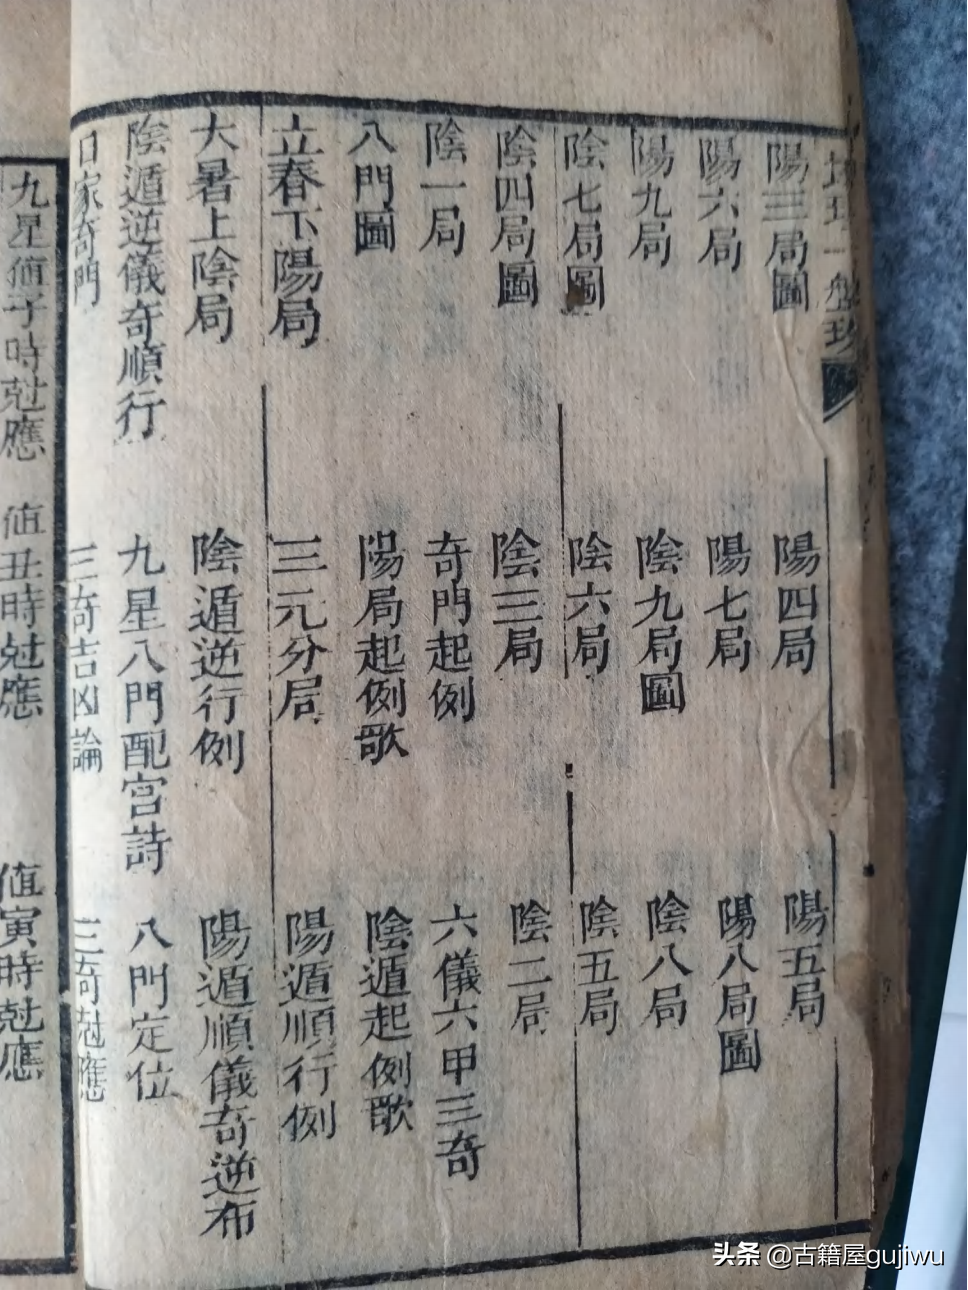 陽三局圖　陽四局　陽五局
陽六局　陽七局　陽八局圖
陽九局　陰九局圖　陰八局
陰七局圖　陰六局　陰五局
陰四局圖　陰三局　陰二局
陰一局　奇門起例　六儀六甲三奇
八門圖　陽局起例歌　陰遁起例歌
立春下陽局　三元分局　陽遁順行例
大暑上陰局　陰遁逆行例　陽遁順儀奇逆布
陰遁逆儀奇順行　九星八門配宮詩　八門定位
日家奇門　三奇吉凶論　三奇尅應
九星値子時尅應　値丑時尅應　値寅時尅應
头条 @古籍屋gujiwu